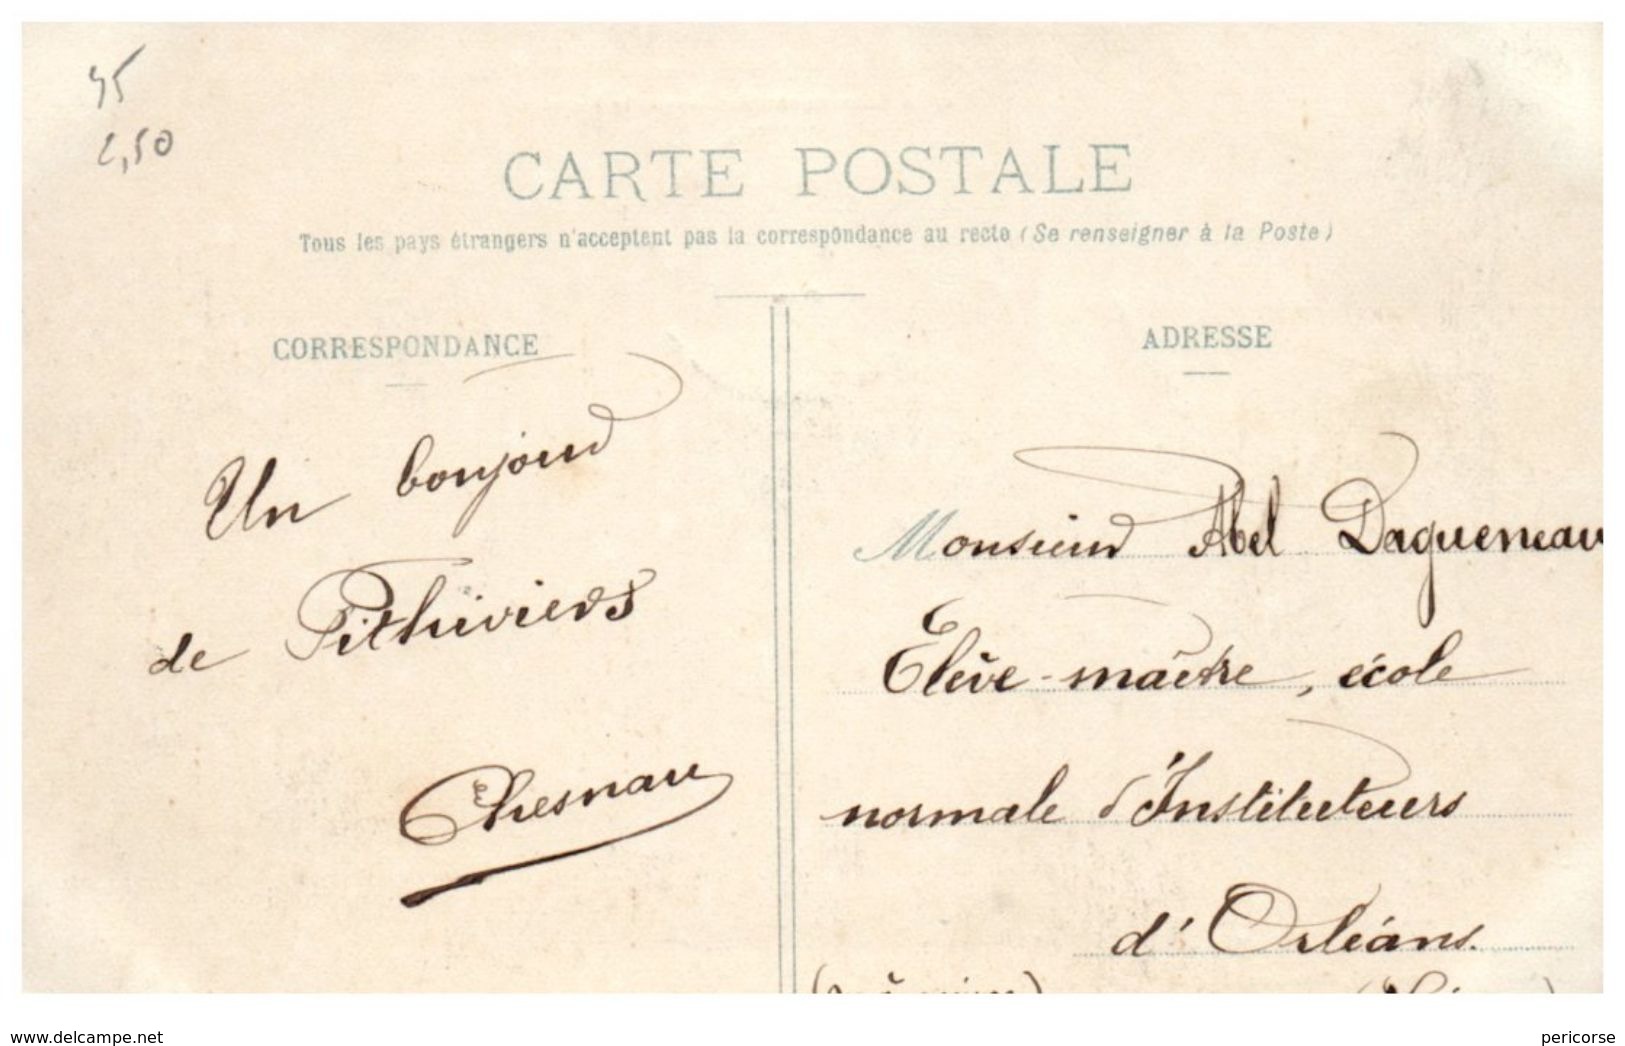 45
2,50
CARTE POSTALE
Tous les pays étrangers n'acceptent pas la correspondance au recto (Se renseigner à la Poste)
CORRESPONDANCE
Un bonjour
de Pithiviers
Chesnau
ADRESSE
Monsieur Abel Dagueneau
Elève-maître, école
normale d'Instituteurs
d'Orléans.
www.delcampe.net
pericorse